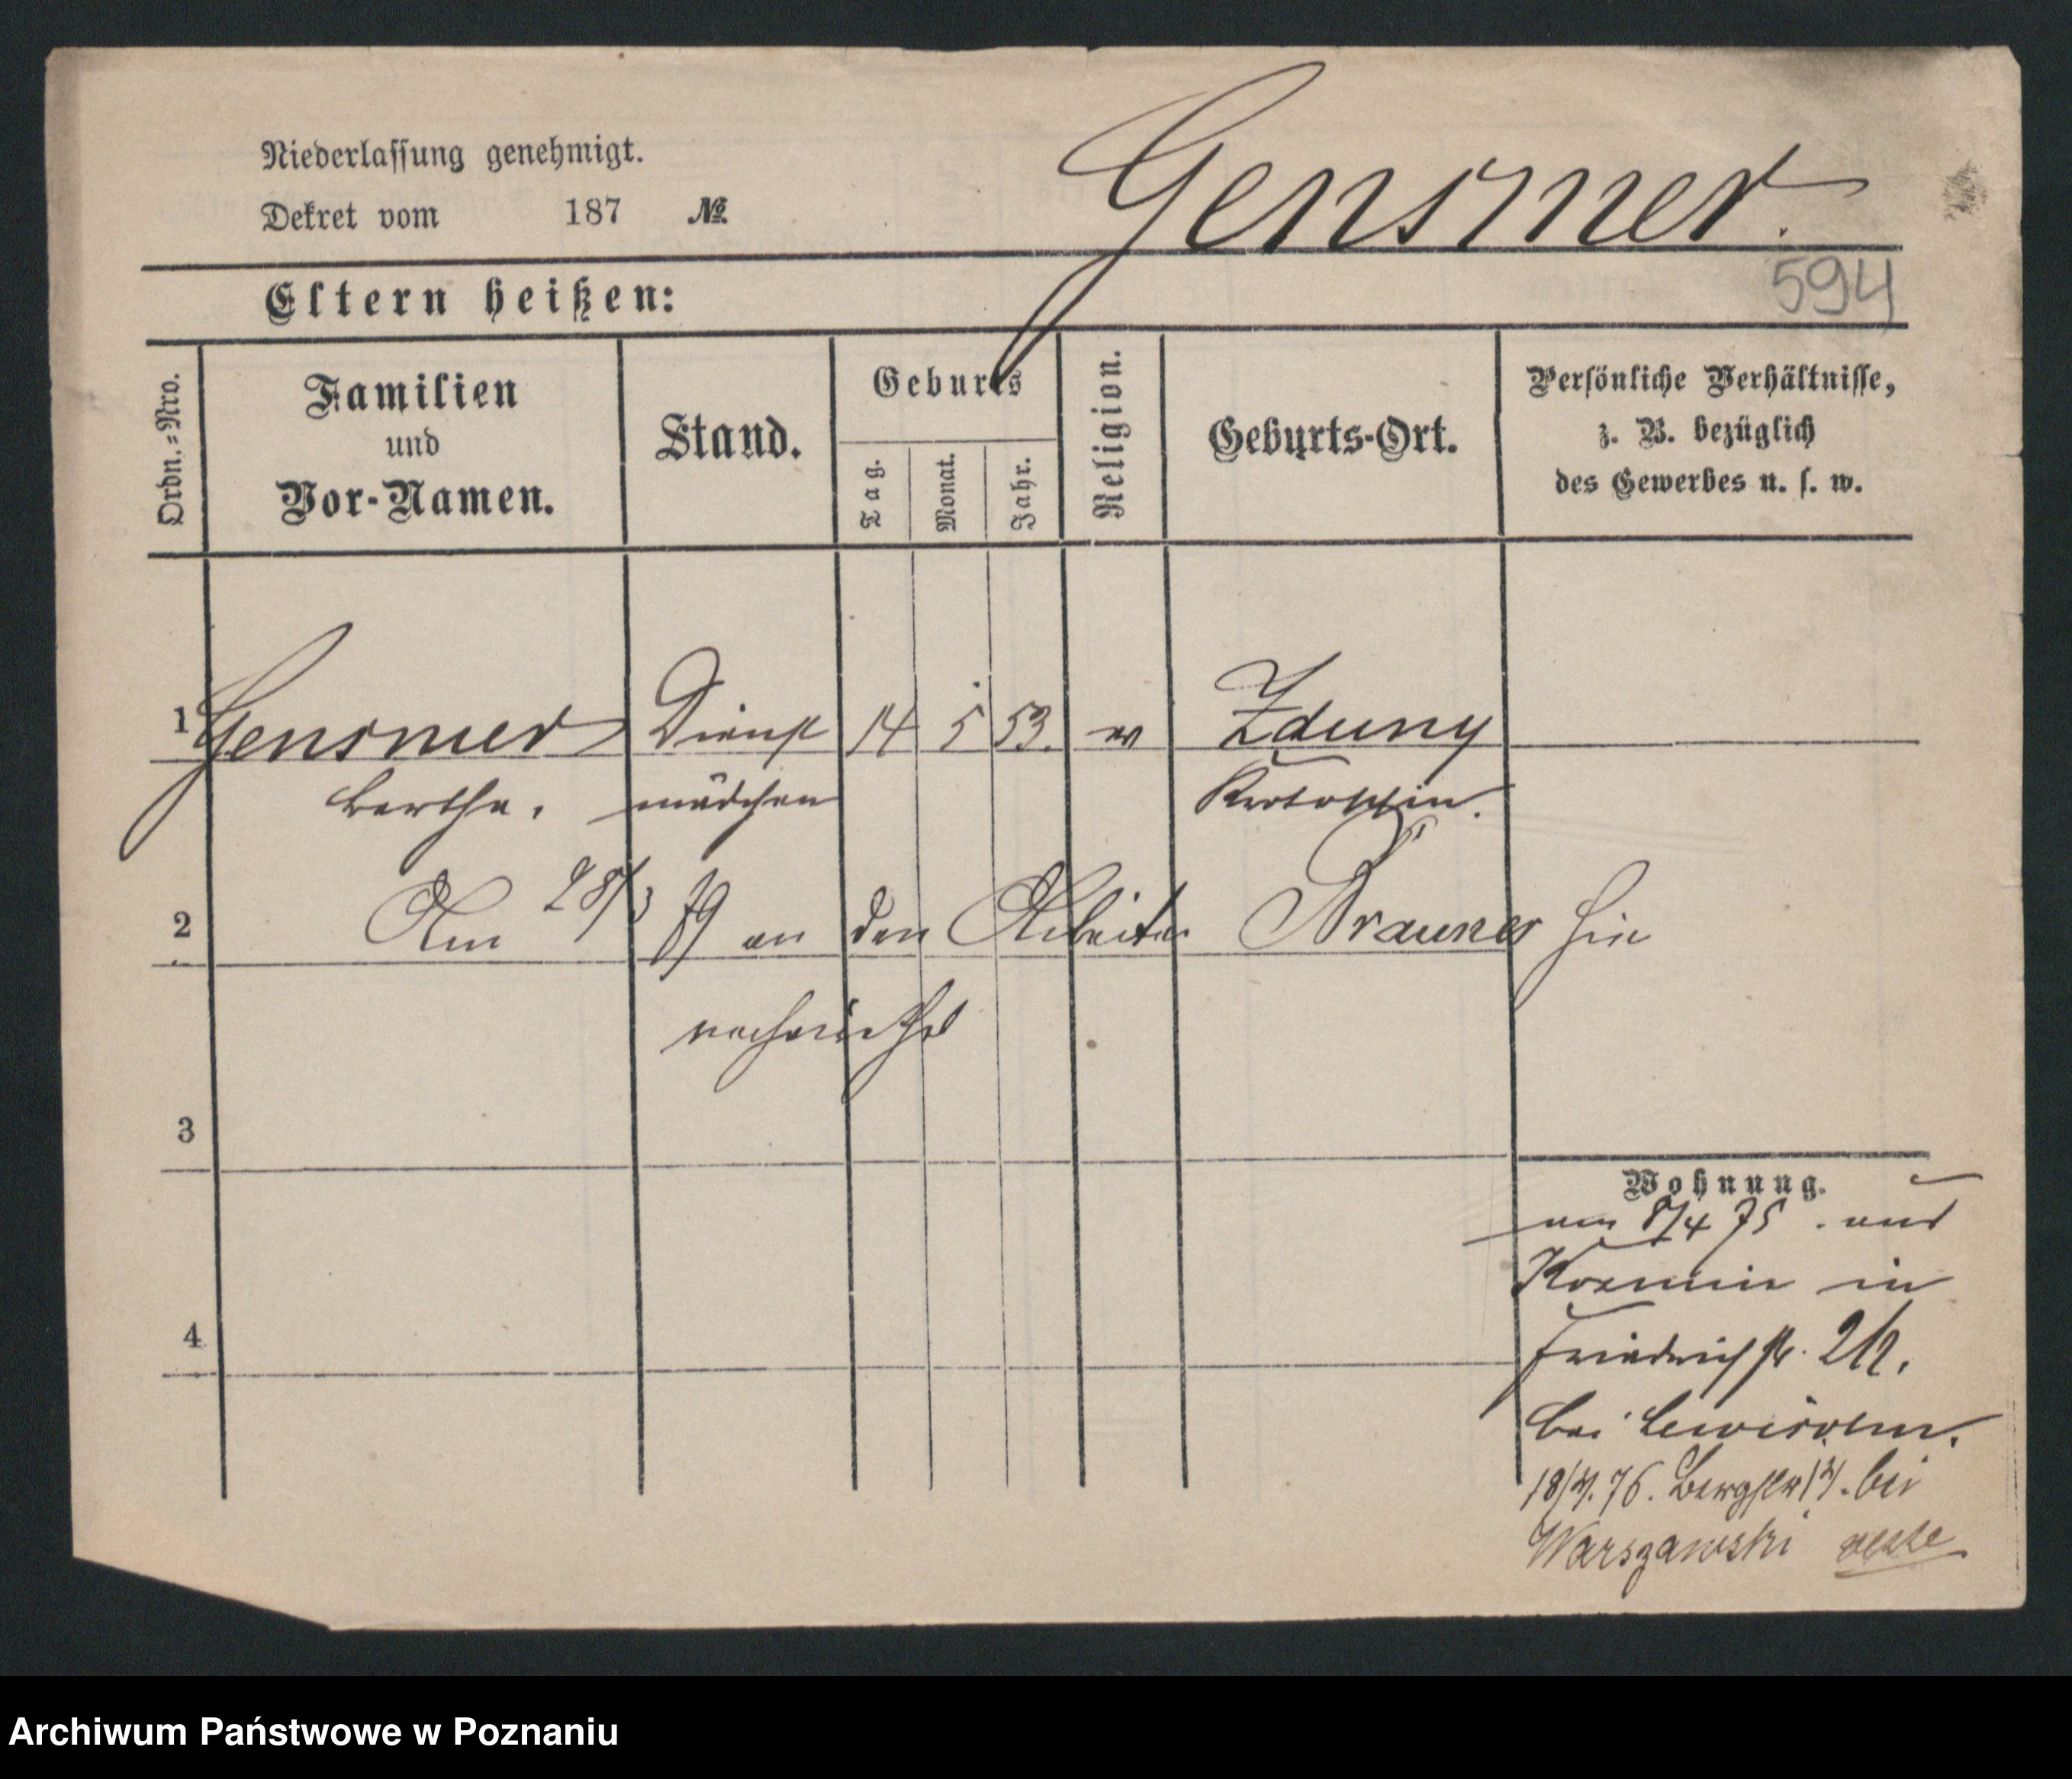 Niederlassung genehmigt.
Dekret vom 187 №
Gensmer.
594
Eltern heißen:
Ordn.=Nro.
Familien
und
Vor-Namen.
Stand.
Geburts
Tag.
Monat.
Jahr.
Religion.
Geburts-Ort.
Persönliche Verhältnisse,
z. B. bezüglich
des Gewerbes u. s. w.
1 Gensmer Dienst 14 5 53. ev Zduny
Bertha. mädchen Krotoschin.
2 Am 28/3 79 an den Arbeiter Brauner hier
verheirathet
3
Wohnung.
am 8/4 75. aus
Kozmin in
4
Friedrichstr.
bei Lewisohn.
18/4. 76. Bergstr bei
Warszawski
Archiwum Państwowe w Poznaniu